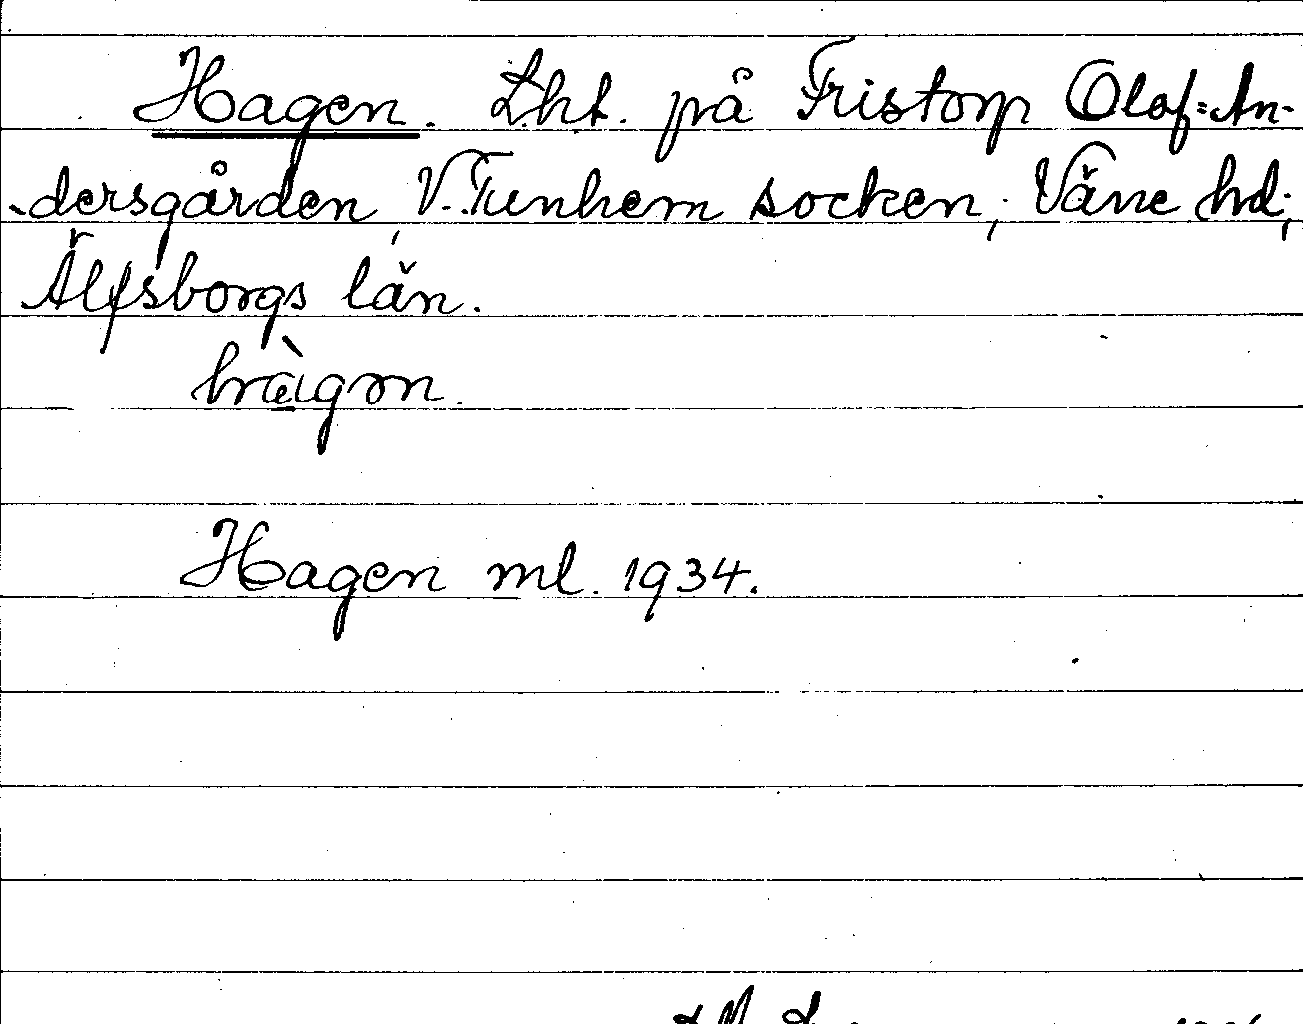 Hagen. Lht. på Fristorp Olof-An-
dersgården, V. Tunhem socken, Väne hd,
Älfsborgs län.
hàgɷn.
Hagen ml. 1934.